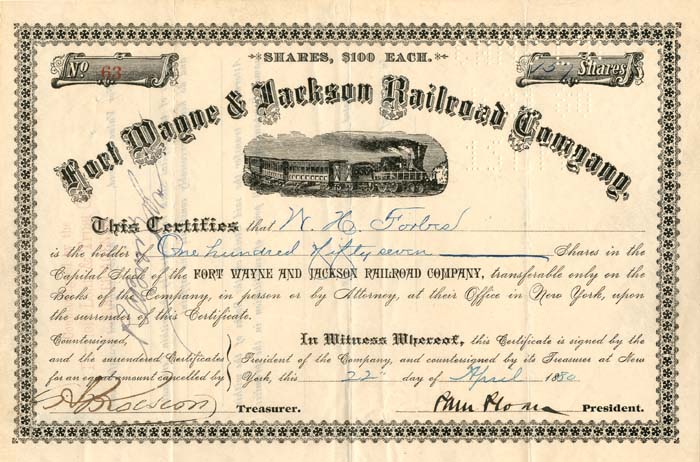 SHARES, $100 EACH.
No 63
157 Shares
Fort Wayne & Jackson Railroad Company,
This Certifies that W. H. Forbes
is the holder One hundred fifty seven Shares in the
Capital Stock of the FORT WAYNE AND JACKSON RAILROAD COMPANY, transferable only on the
Books of the Company, in person or by Attorney, at their Office in New York, upon
the surrender of this Certificate.
Countersigned,
and the surrendered Certificates
for an equal amount cancelled by
Treasurer.
In Witness Whereof, this Certificate is signed by the
President of the Company, and countersigned by its Treasurer at New
York, this 22d day of April 1880
President.